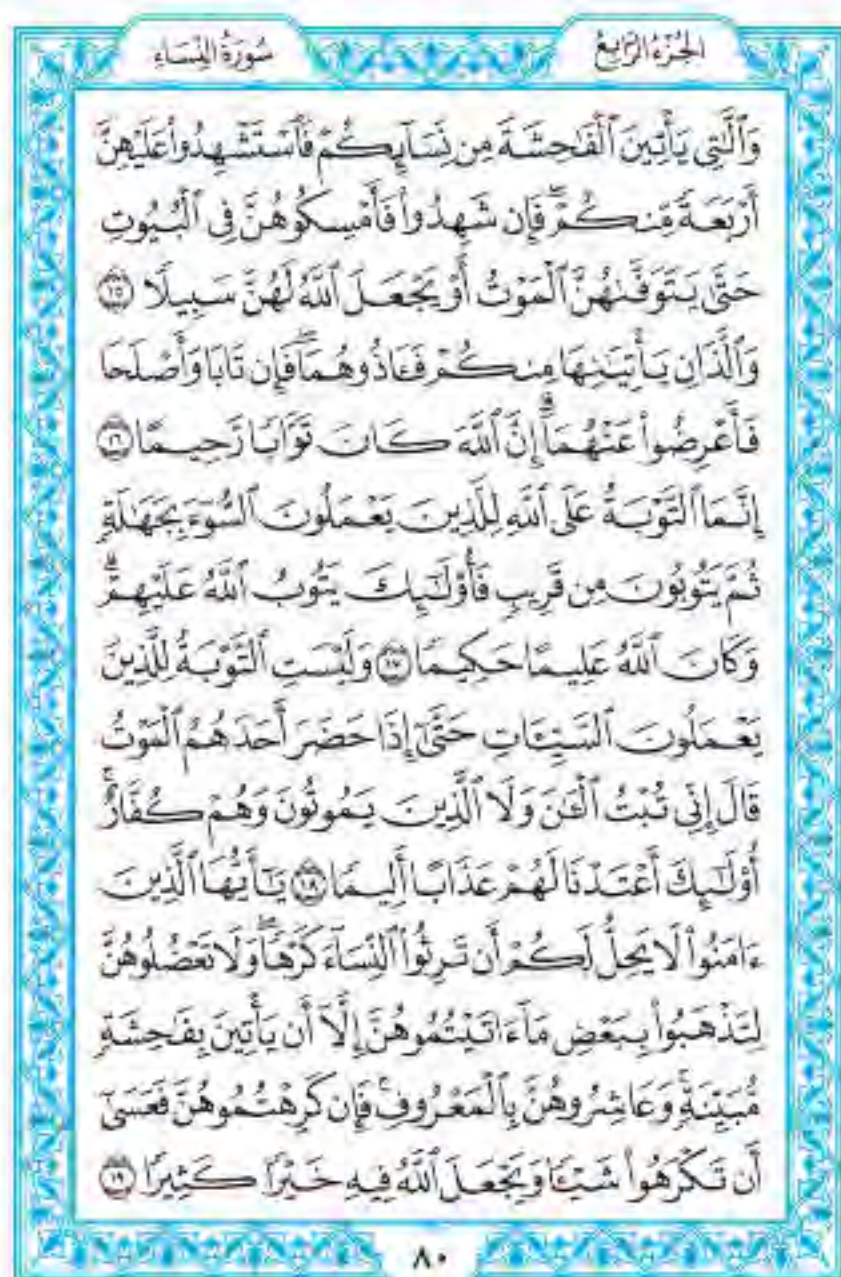 الجزء الرابع
سورة النساء
وَٱلَّٰتِي يَأْتِينَ ٱلْفَٰحِشَةَ مِن نِّسَآئِكُمْ فَٱسْتَشْهِدُوا۟ عَلَيْهِنَّ
أَرْبَعَةً مِّنكُمْ ۖ فَإِن شَهِدُوا۟ فَأَمْسِكُوهُنَّ فِى ٱلْبُيُوتِ
حَتَّىٰ يَتَوَفَّىٰهُنَّ ٱلْمَوْتُ أَوْ يَجْعَلَ ٱللَّهُ لَهُنَّ سَبِيلًا ١٥
وَٱلَّذَانِ يَأْتِيَٰنِهَا مِنكُمْ فَـَٔاذُوهُمَا ۖ فَإِن تَابَا وَأَصْلَحَا
فَأَعْرِضُوا۟ عَنْهُمَآ ۗ إِنَّ ٱللَّهَ كَانَ تَوَّابًا رَّحِيمًا ١٦
إِنَّمَا ٱلتَّوْبَةُ عَلَى ٱللَّهِ لِلَّذِينَ يَعْمَلُونَ ٱلسُّوٓءَ بِجَهَٰلَةٍ
ثُمَّ يَتُوبُونَ مِن قَرِيبٍ فَأُو۟لَٰٓئِكَ يَتُوبُ ٱللَّهُ عَلَيْهِمْ ۗ
وَكَانَ ٱللَّهُ عَلِيمًا حَكِيمًا ١٧ وَلَيْسَتِ ٱلتَّوْبَةُ لِلَّذِينَ
يَعْمَلُونَ ٱلسَّيِّـَٔاتِ حَتَّىٰٓ إِذَا حَضَرَ أَحَدَهُمُ ٱلْمَوْتُ
قَالَ إِنِّى تُبْتُ ٱلْـَٰٔنَ وَلَا ٱلَّذِينَ يَمُوتُونَ وَهُمْ كُفَّارٌ ۚ
أُو۟لَٰٓئِكَ أَعْتَدْنَا لَهُمْ عَذَابًا أَلِيمًا ١٨ يَٰٓأَيُّهَا ٱلَّذِينَ
ءَامَنُوا۟ لَا يَحِلُّ لَكُمْ أَن تَرِثُوا۟ ٱلنِّسَآءَ كَرْهًا ۖ وَلَا تَعْضُلُوهُنَّ
لِتَذْهَبُوا۟ بِبَعْضِ مَآ ءَاتَيْتُمُوهُنَّ إِلَّآ أَن يَأْتِينَ بِفَٰحِشَةٍ
مُّبَيِّنَةٍ ۚ وَعَاشِرُوهُنَّ بِٱلْمَعْرُوفِ ۚ فَإِن كَرِهْتُمُوهُنَّ فَعَسَىٰٓ
أَن تَكْرَهُوا۟ شَيْـًٔا وَيَجْعَلَ ٱللَّهُ فِيهِ خَيْرًا كَثِيرًا ١٩
٨٠